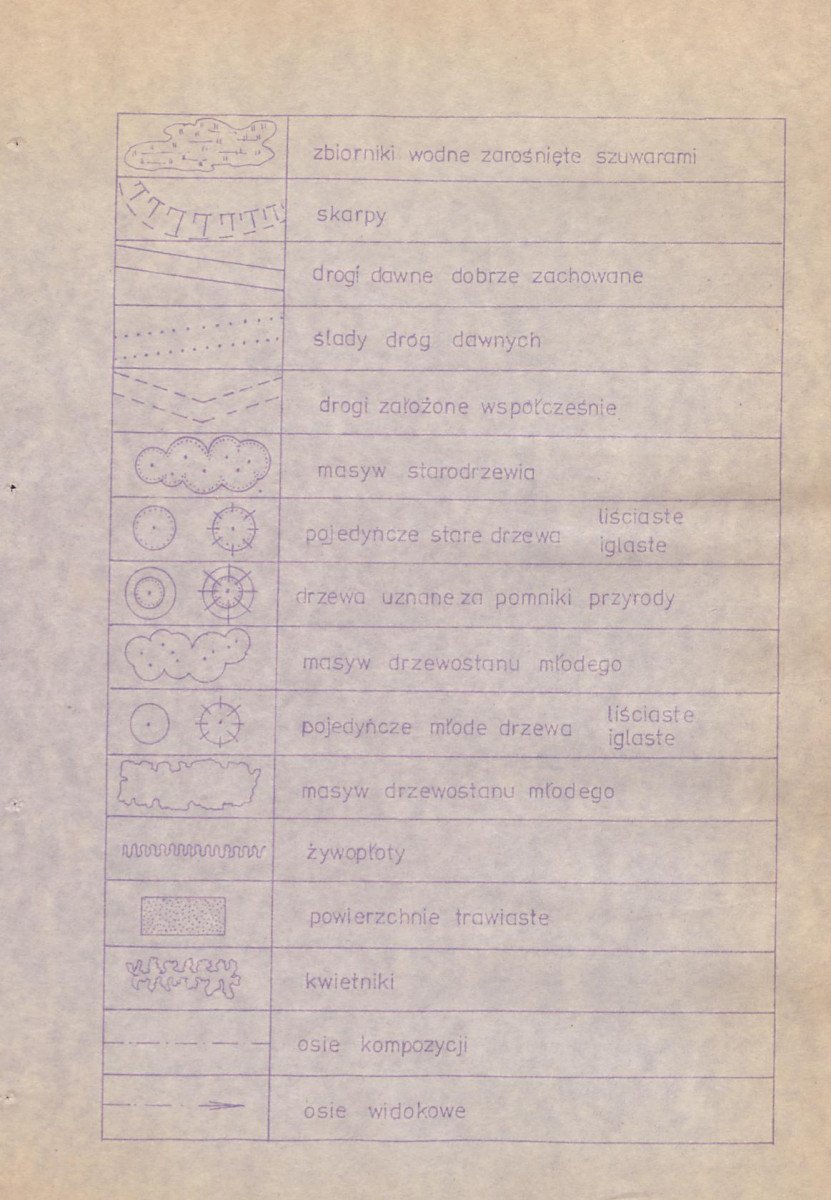 zbiorniki wodne zarośnięte szuwarami
skarpy
drogi dawne dobrze zachowane
ślady dróg dawnych
drogi założone współcześnie
masyw starodrzewia
pojedyńcze stare drzewa liściaste
iglaste
drzewa uznane za pomniki przyrody
masyw drzewostanu młodego
pojedyńcze młode drzewa liściaste
iglaste
masyw drzewostanu młodego
żywopłoty
powierzchnie trawiaste
kwietniki
osie kompozycji
osie widokowe